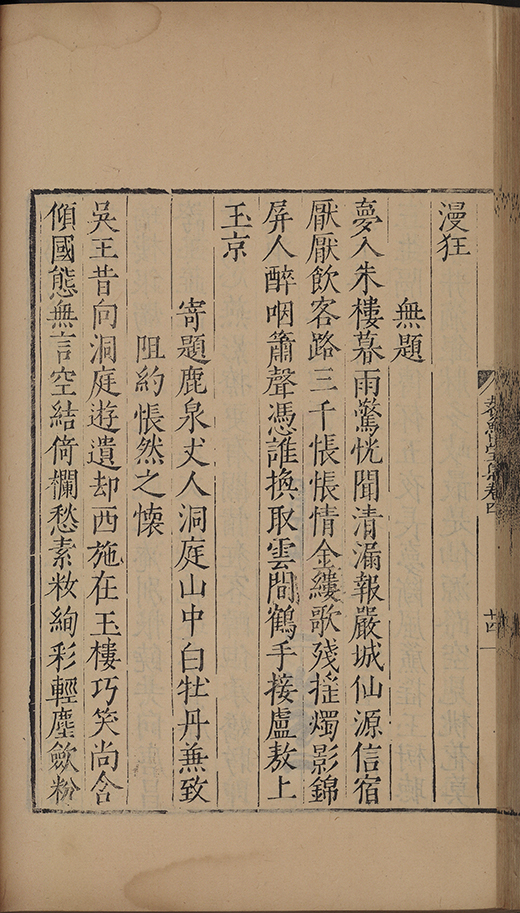 卷四
十四
漫狂
無題
夢入朱樓暮雨驚恍聞清漏報嚴城仙源信宿
厭厭飲客路三千悵悵情金縷歌殘搖燭影錦
屏人醉咽簫聲憑誰換取雲間鶴手接盧敖上
玉京
寄題鹿泉丈人洞庭山中白牡丹兼致
阻約悵然之懷
吳王昔向洞庭遊遺却西施在玉樓巧笑尚含
傾國態無言空結倚欄愁素籹絢彩輕塵歛粉